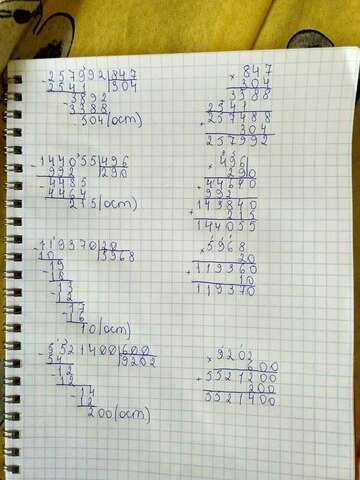 - 257992 | 847
2541 | 304
- 3892
3388
504 (ост)
× 847
304
3388
2541
+ 257488
504
257992
- 144055 | 496
992 | 290
- 4485
4464
215 (ост)
× 496
290
+ 44640
992
+ 143840
215
144055
- 119370 | 20
10 | 5968
- 19
18
- 13
12
- 17
16
10 (ост)
× 5968
20
+ 119360
10
119370
- 5521400 | 600
54 | 9202
- 12
12
- 14
12
200 (ост)
× 9202
600
+ 5521200
200
5521400